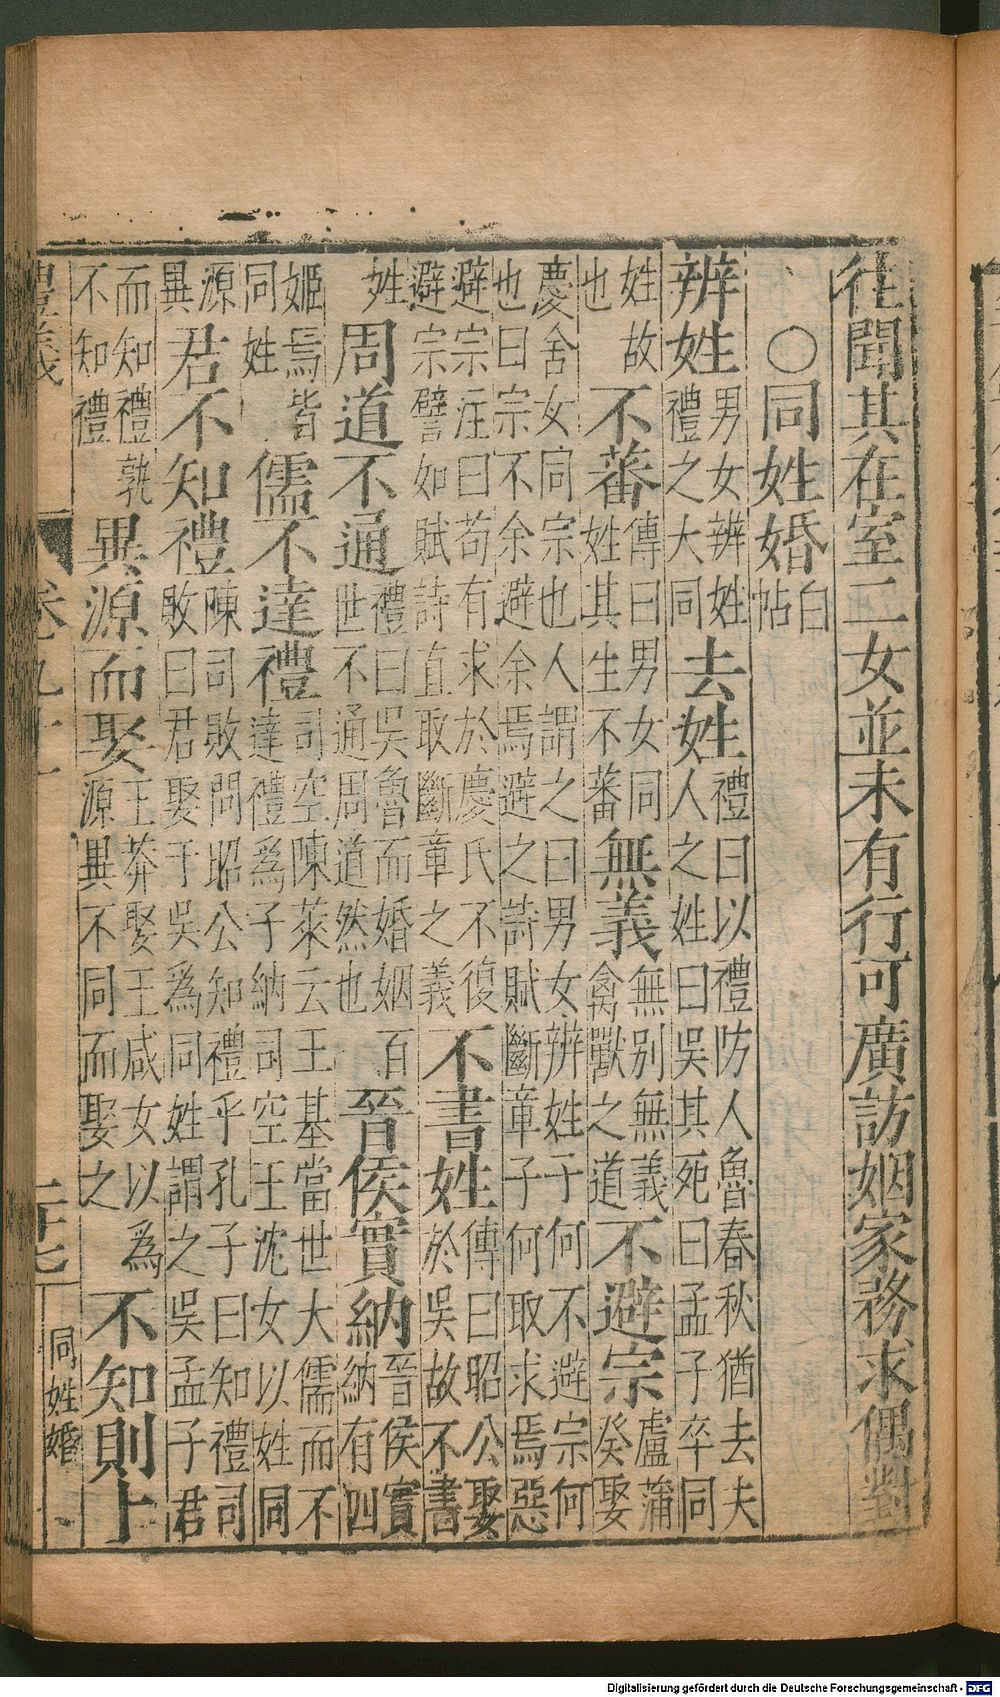 往聞其在室二女並未有行可廣訪姻家務求偶對
○同姓婚白帖
辨姓男女辨姓禮之大同去姓禮曰以禮防人魯春秋猶去夫人之姓曰吳其死曰孟子卒同
姓故也不蕃傳曰男女同姓其生不蕃無義無別無義禽獸之道不避宗盧蒲癸娶
慶舍女同宗也人謂之曰男女辨姓子何不避宗何也曰宗不余避余焉避之詩賦斷章子何取求焉惡
避宗注曰苟有求於慶氏不復避宗譬如賦詩直取斷章之義不書姓傳曰昭公娶於吳故不書
姓周道不通禮曰吳魯而婚姻百世不通周道然也晉侯實納晉侯實納有四
姬焉皆同姓儒不達禮司空陳萊云王基當世大儒而不達禮為子納司空王沈女以姓同
源異君不知禮陳司敗問昭公知禮乎孔子曰知禮司敗曰君娶于吳為同姓謂之吳孟子君
而知禮孰不知禮異源而娶王莽娶王咸女以為源異不同而娶之不知則上
卷九十
二十七
同姓婚
Digitalisierung gefördert durch die Deutsche Forschungsgemeinschaft - DFG